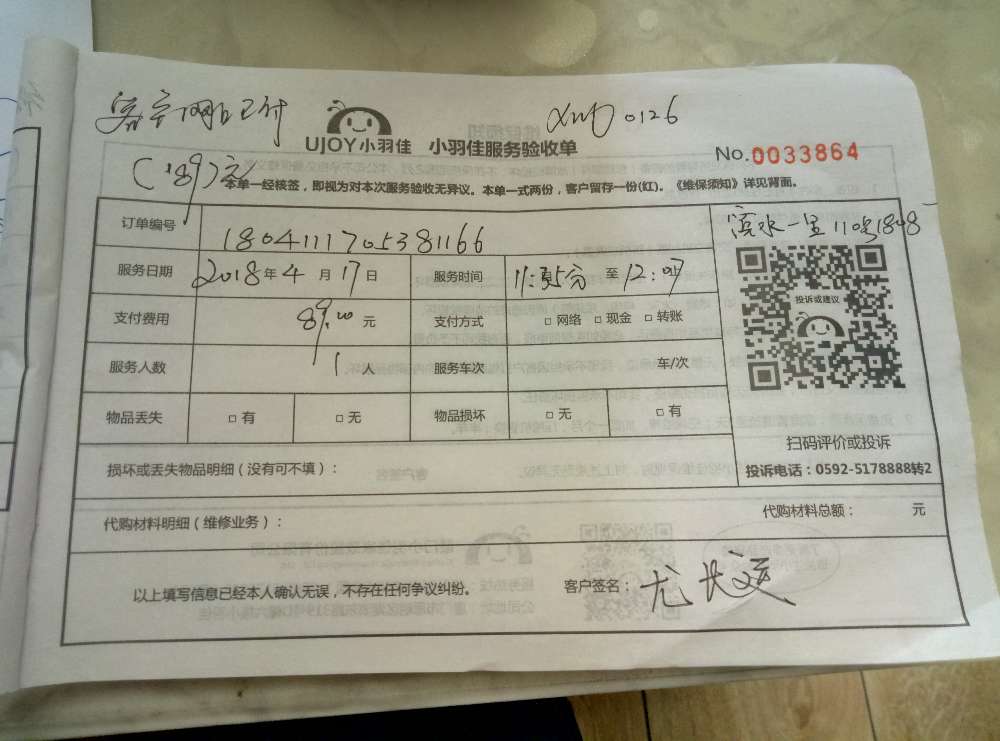 客户网上已付 XMD0126
(189)元
UJOY小羽佳 小羽佳服务验收单
No.0033864
本单一经核签，即视为对本次服务验收无异议。本单一式两份，客户留存一份(红)。《维保须知》详见背面。
订单编号 1804111705381166 滨水一里110号1808
服务日期 2018年4月17日 服务时间 11:35分至12:07
投诉或建议
支付费用 89.00元 支付方式 □网络 □现金 □转账
服务人数 1人 服务车次 车/次
物品丢失 □有 □无 物品损坏 □无 □有
扫码评价或投诉
损坏或丢失物品明细（没有可不填）：
投诉电话：0592-5178888转2
代购材料明细（维修业务）： 代购材料总额： 元
以上填写信息已经本人确认无误，不存在任何争议纠纷。 客户签名：尤